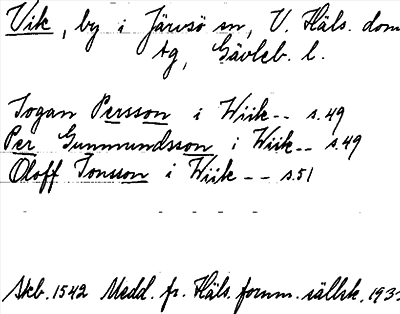 Vik, by i Järvsö sn, V. Häls. dom
sg, Gävleb. l.
Jogan Persson i Wiik-- s.49
Per Gunmundsson i Wiik-- s.49
Oloff Jonsson i Wiik -- s.51
Skb. 1542 Medd. fr. Häls. fornm. sällsk. 193